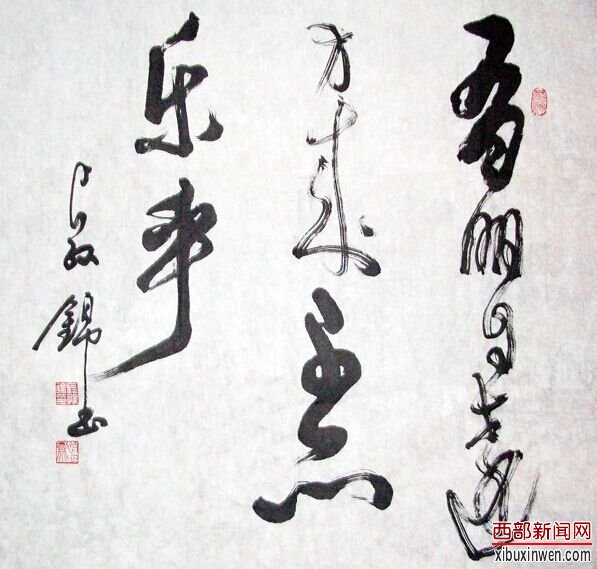 有朋自遠
方来
乐事
錦书
西部新闻网
xibuxinwen.com